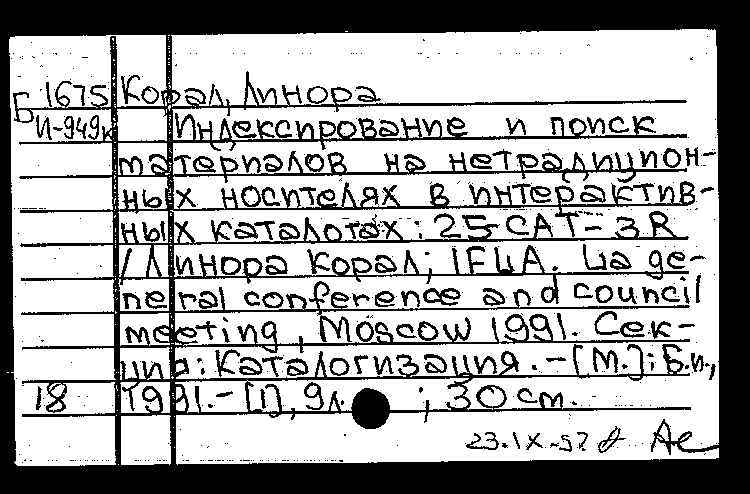 Б 1675 Корал, Линора
И-949к Индексирование и поиск
материалов на нетрадицион-
ных носителях в интерактив-
ных каталогах : 25-CAT-3R
/ Линора Корал; IFLA. La ge-
neral conference and council
meeting, Moscow 1991. Сек-
ция: Каталогизация. - [М.]: Б.и.,
18 1991. - [1], 9 л. ; 30 cm.
23.IX-92 Ае